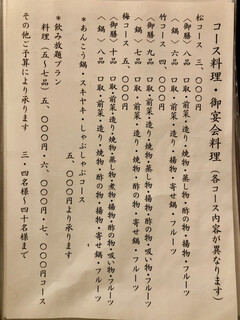 コース料理・御宴会料理（各コース内容が異なります）
松コース　三、〇〇〇円
〈御膳〉八品　口取・前菜・造り・焼物・蒸し物・酢の物・揚物・フルーツ
〈鍋〉六品　口取・前菜・造り・揚物・寄せ鍋・フルーツ
竹コース　四、〇〇〇円
〈御膳〉九品　口取・前菜・造り・焼物・蒸し物・揚物・酢の物・吸い物・フルーツ
〈鍋〉七品　口取・前菜・造り・焼物・酢の物・寄せ鍋・フルーツ
梅コース　五、〇〇〇円
〈御膳〉十品　口取・前菜・造り・焼物・蒸し物・煮物・揚物・酢の物・吸い物・フルーツ
〈鍋〉八品　口取・前菜・造り・焼物・酢の物・揚物・寄せ鍋・フルーツ
＊あんこう鍋・スキヤキ・しゃぶしゃぶコース
五、〇〇〇円より承ります
＊飲み放題プラン
料理（五〜七品）五、〇〇〇円・六、〇〇〇円・七、〇〇〇円コース
その他ご予算により承ります　三・四名様〜四十名様まで